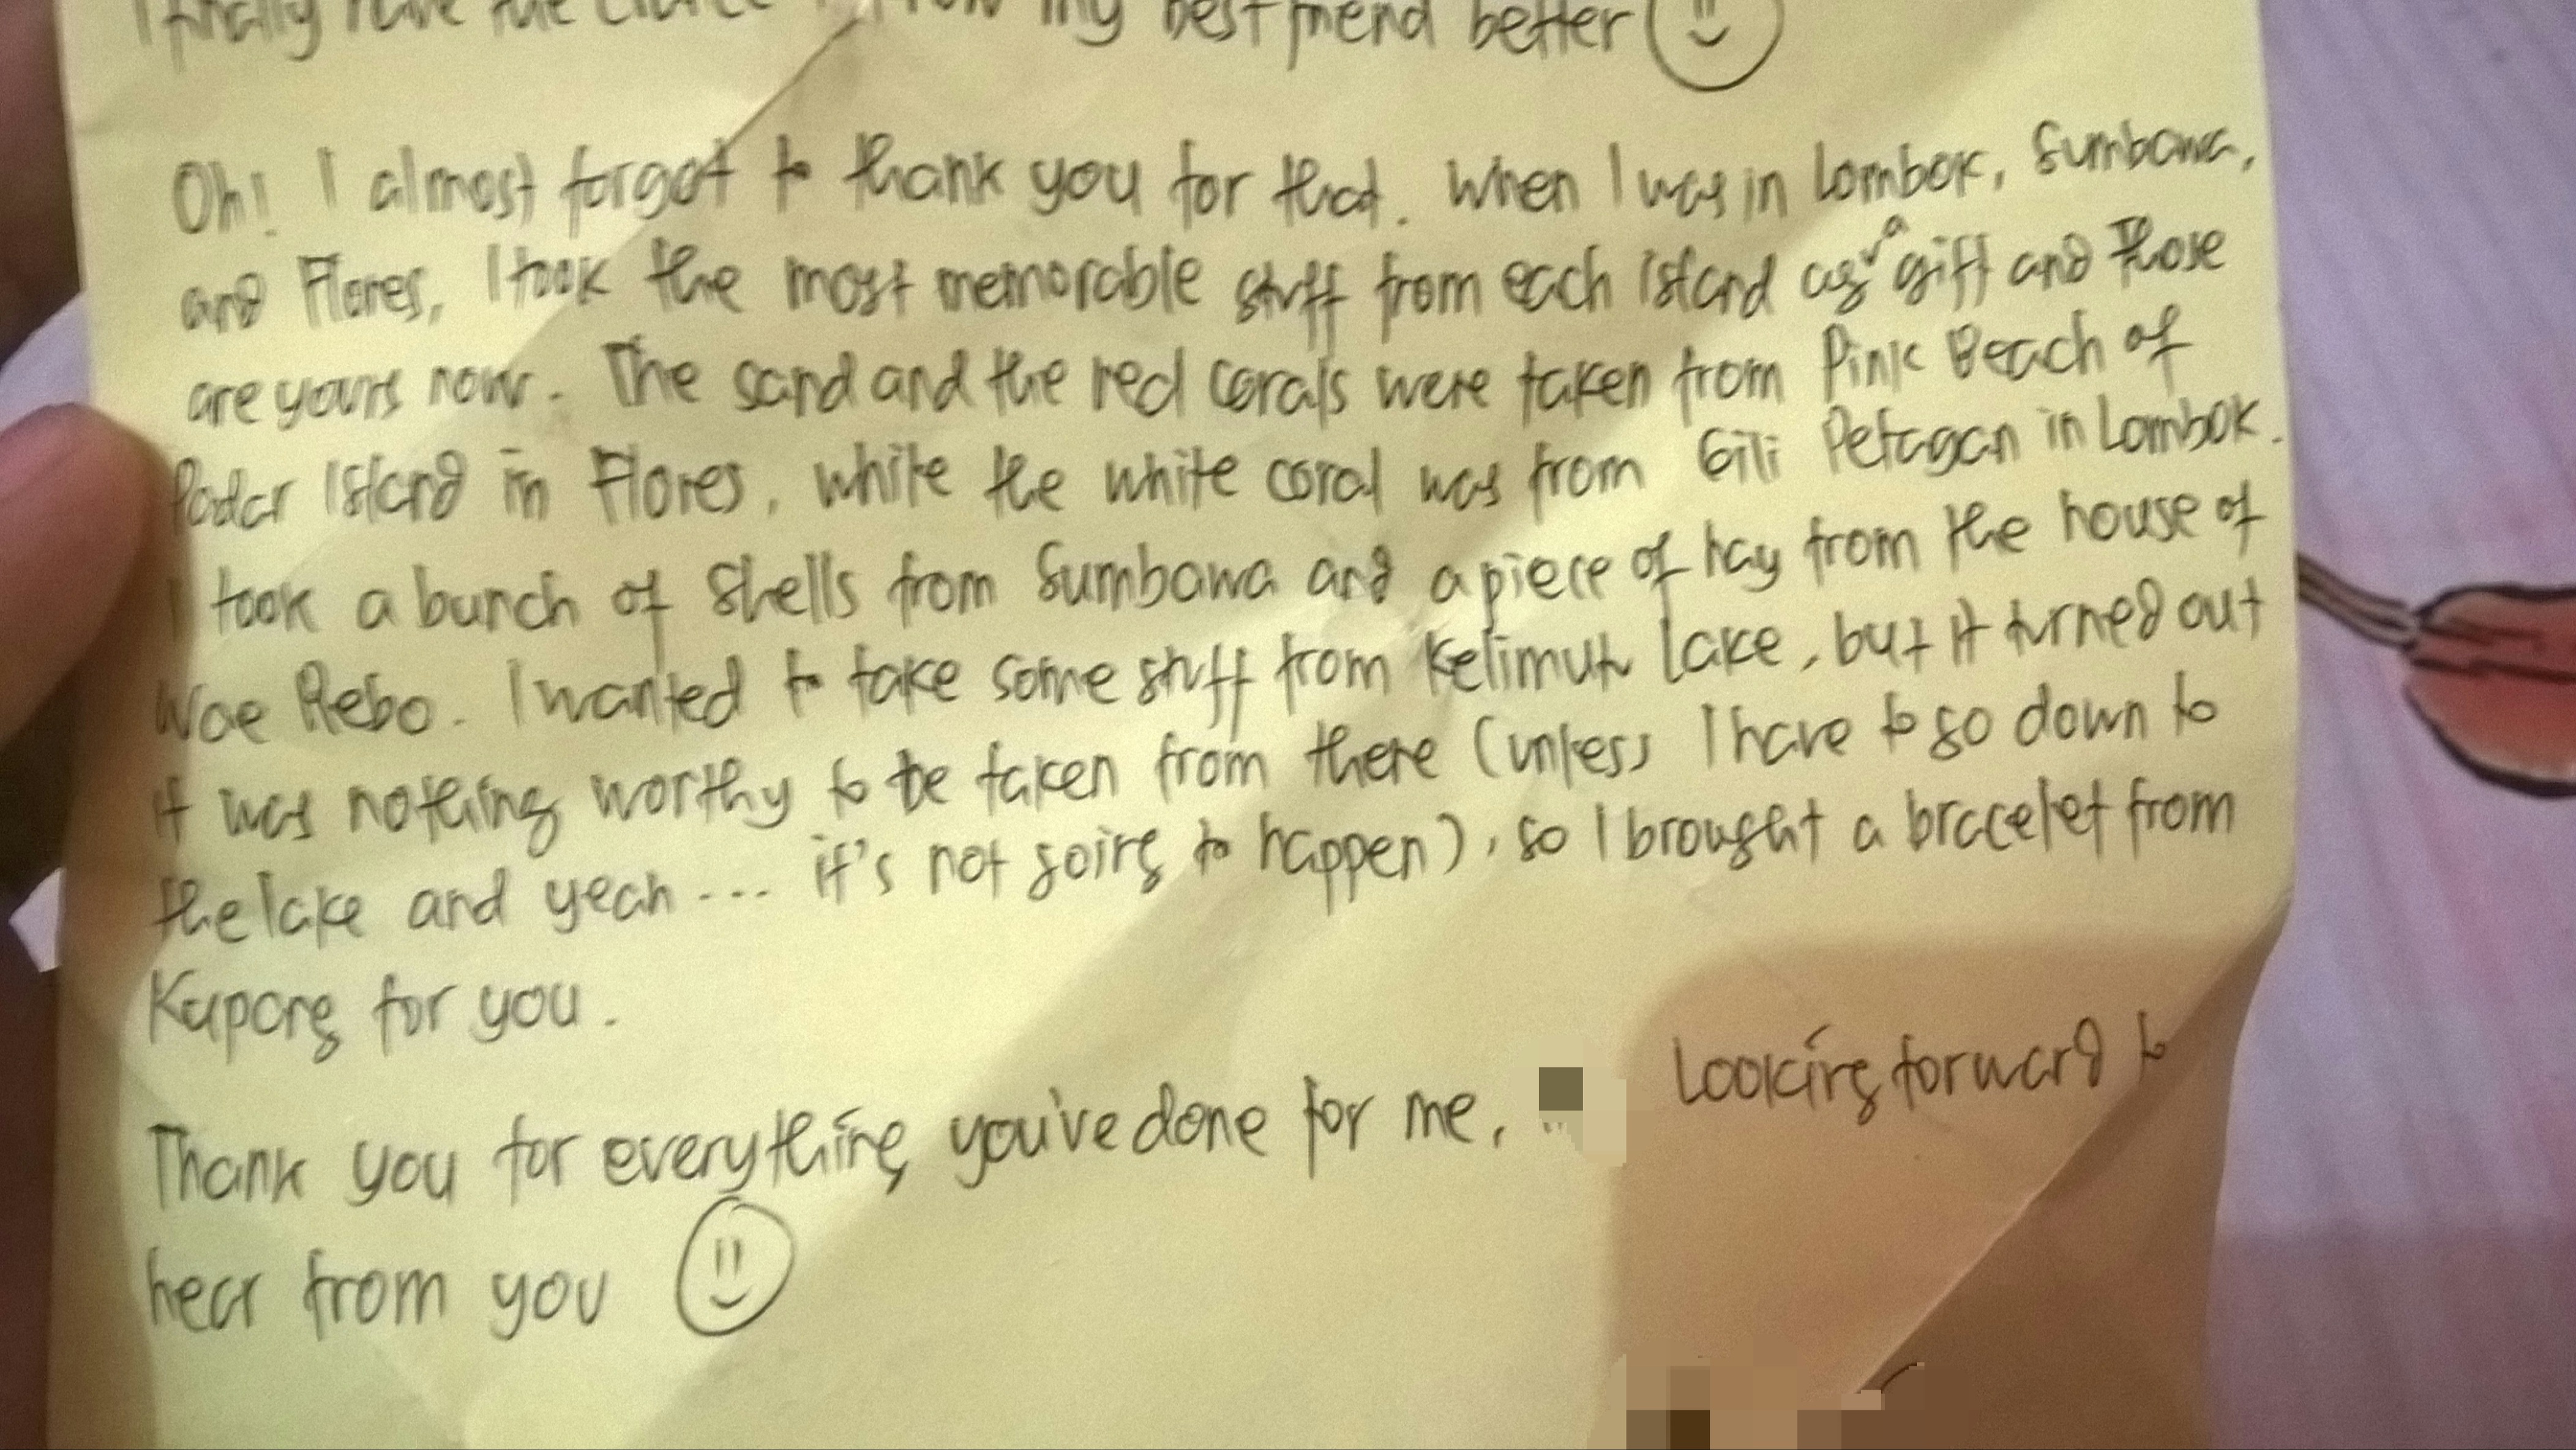 I finally have the chance my best friend better
Oh! I almost forgot to thank you for that. When I was in Lombok, Sumbawa,
and Flores, I took the most memorable stuff from each island as a gift and those
are yours now. The sand and the red corals were taken from Pink Beach of
Padar Island in Flores, while the white coral was from Gili Petagan in Lombok.
I took a bunch of shells from Sumbawa and a piece of hay from the house of
Wae Rebo. I wanted to take some stuff from Kelimutu Lake, but it turned out
it was nothing worthy to be taken from there (unless I have to go down to
the lake and yeah... it's not going to happen), so I brought a bracelet from
Kupang for you.
Thank you for everything you've done for me, Looking forward to
hear from you